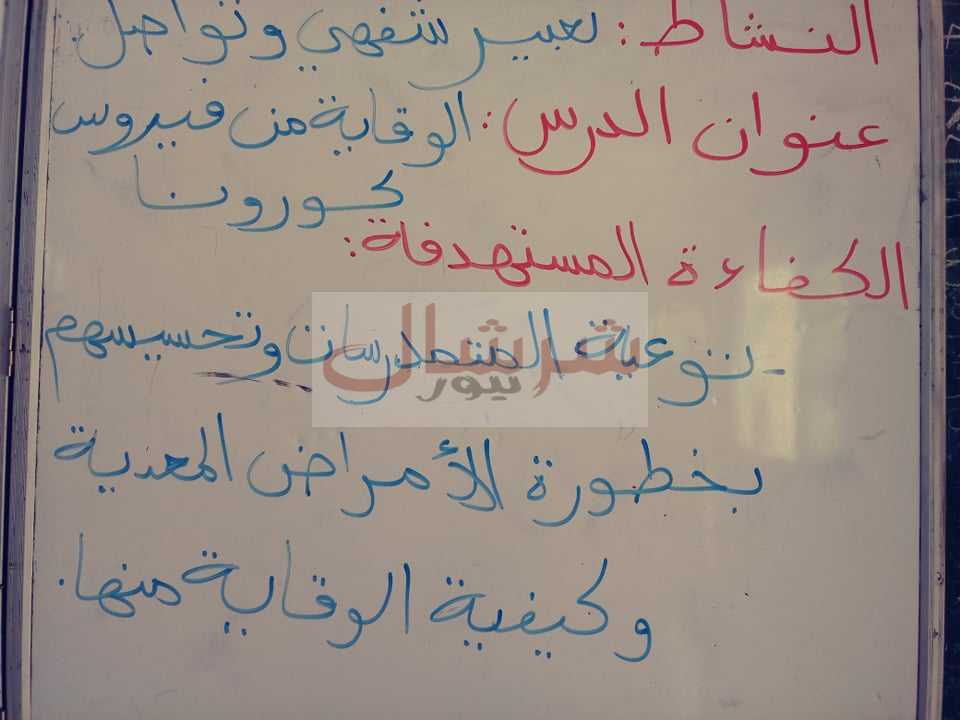 النشاط: تعبير شفهي وتواصل.
عنوان الدرس: الوقاية من فيروس
كورونا
الكفاءة المستهدفة:
- توعية المتمدرسات وتحسيسهم
شرشال
نيوز
بخطورة الأمراض المعدية
وكيفية الوقاية منها.